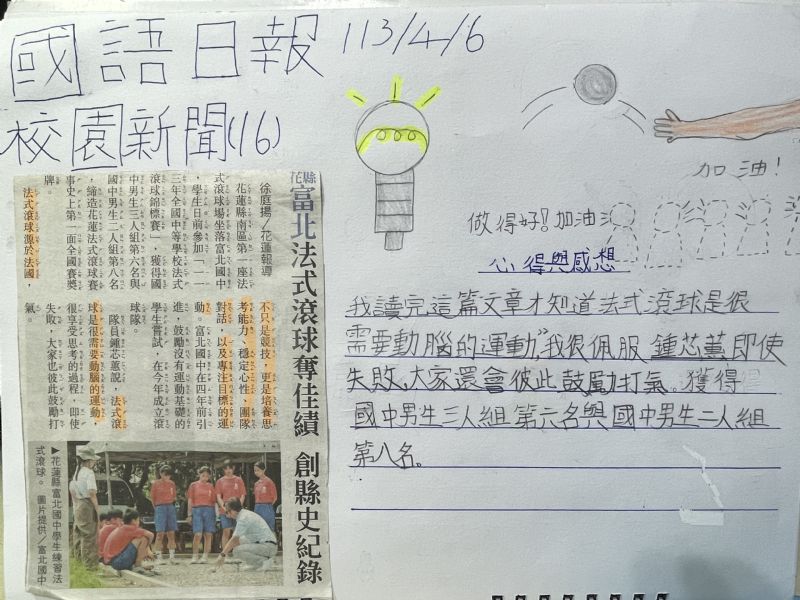 國語日報 113/4/6
校園新聞(16)
花縣 富北法式滾球奪佳績 創縣史紀錄
徐庭揚/花蓮報導
花蓮縣南區第一座法
式滾球場坐落富北國中
,學生日前參加一一
三年全國中等學校法式
滾球錦標賽,獲得國
中男生三人組第六名與
國中男生二人組第八名
,締造花蓮法式滾球賽
事史上第一面全國賽獎
牌。
法式滾球源於法國,
不只是競技,更是培養思
考能力、穩定心性、團隊
對話,以及專注目標的運
動。富北國中在四年前引
進,鼓勵沒有運動基礎的
學生嘗試,在今年成立滾
球隊。
隊員鍾芯蕙說,法式滾
球是很需要動腦的運動,
很享受思考的過程,即使
失敗,大家也彼此鼓勵打
氣。
▶花蓮縣富北國中學生練習法
式滾球。 圖片提供/富北國中
加油!
做得好!加油
心得與感想
我讀完這篇文章才知道法式滾球是很
需要動腦的運動,我很佩服鍾芯蕙即使
失敗,大家還會彼此鼓勵打氣。獲得
國中男生三人組第六名與國中男生二人組
第八名。